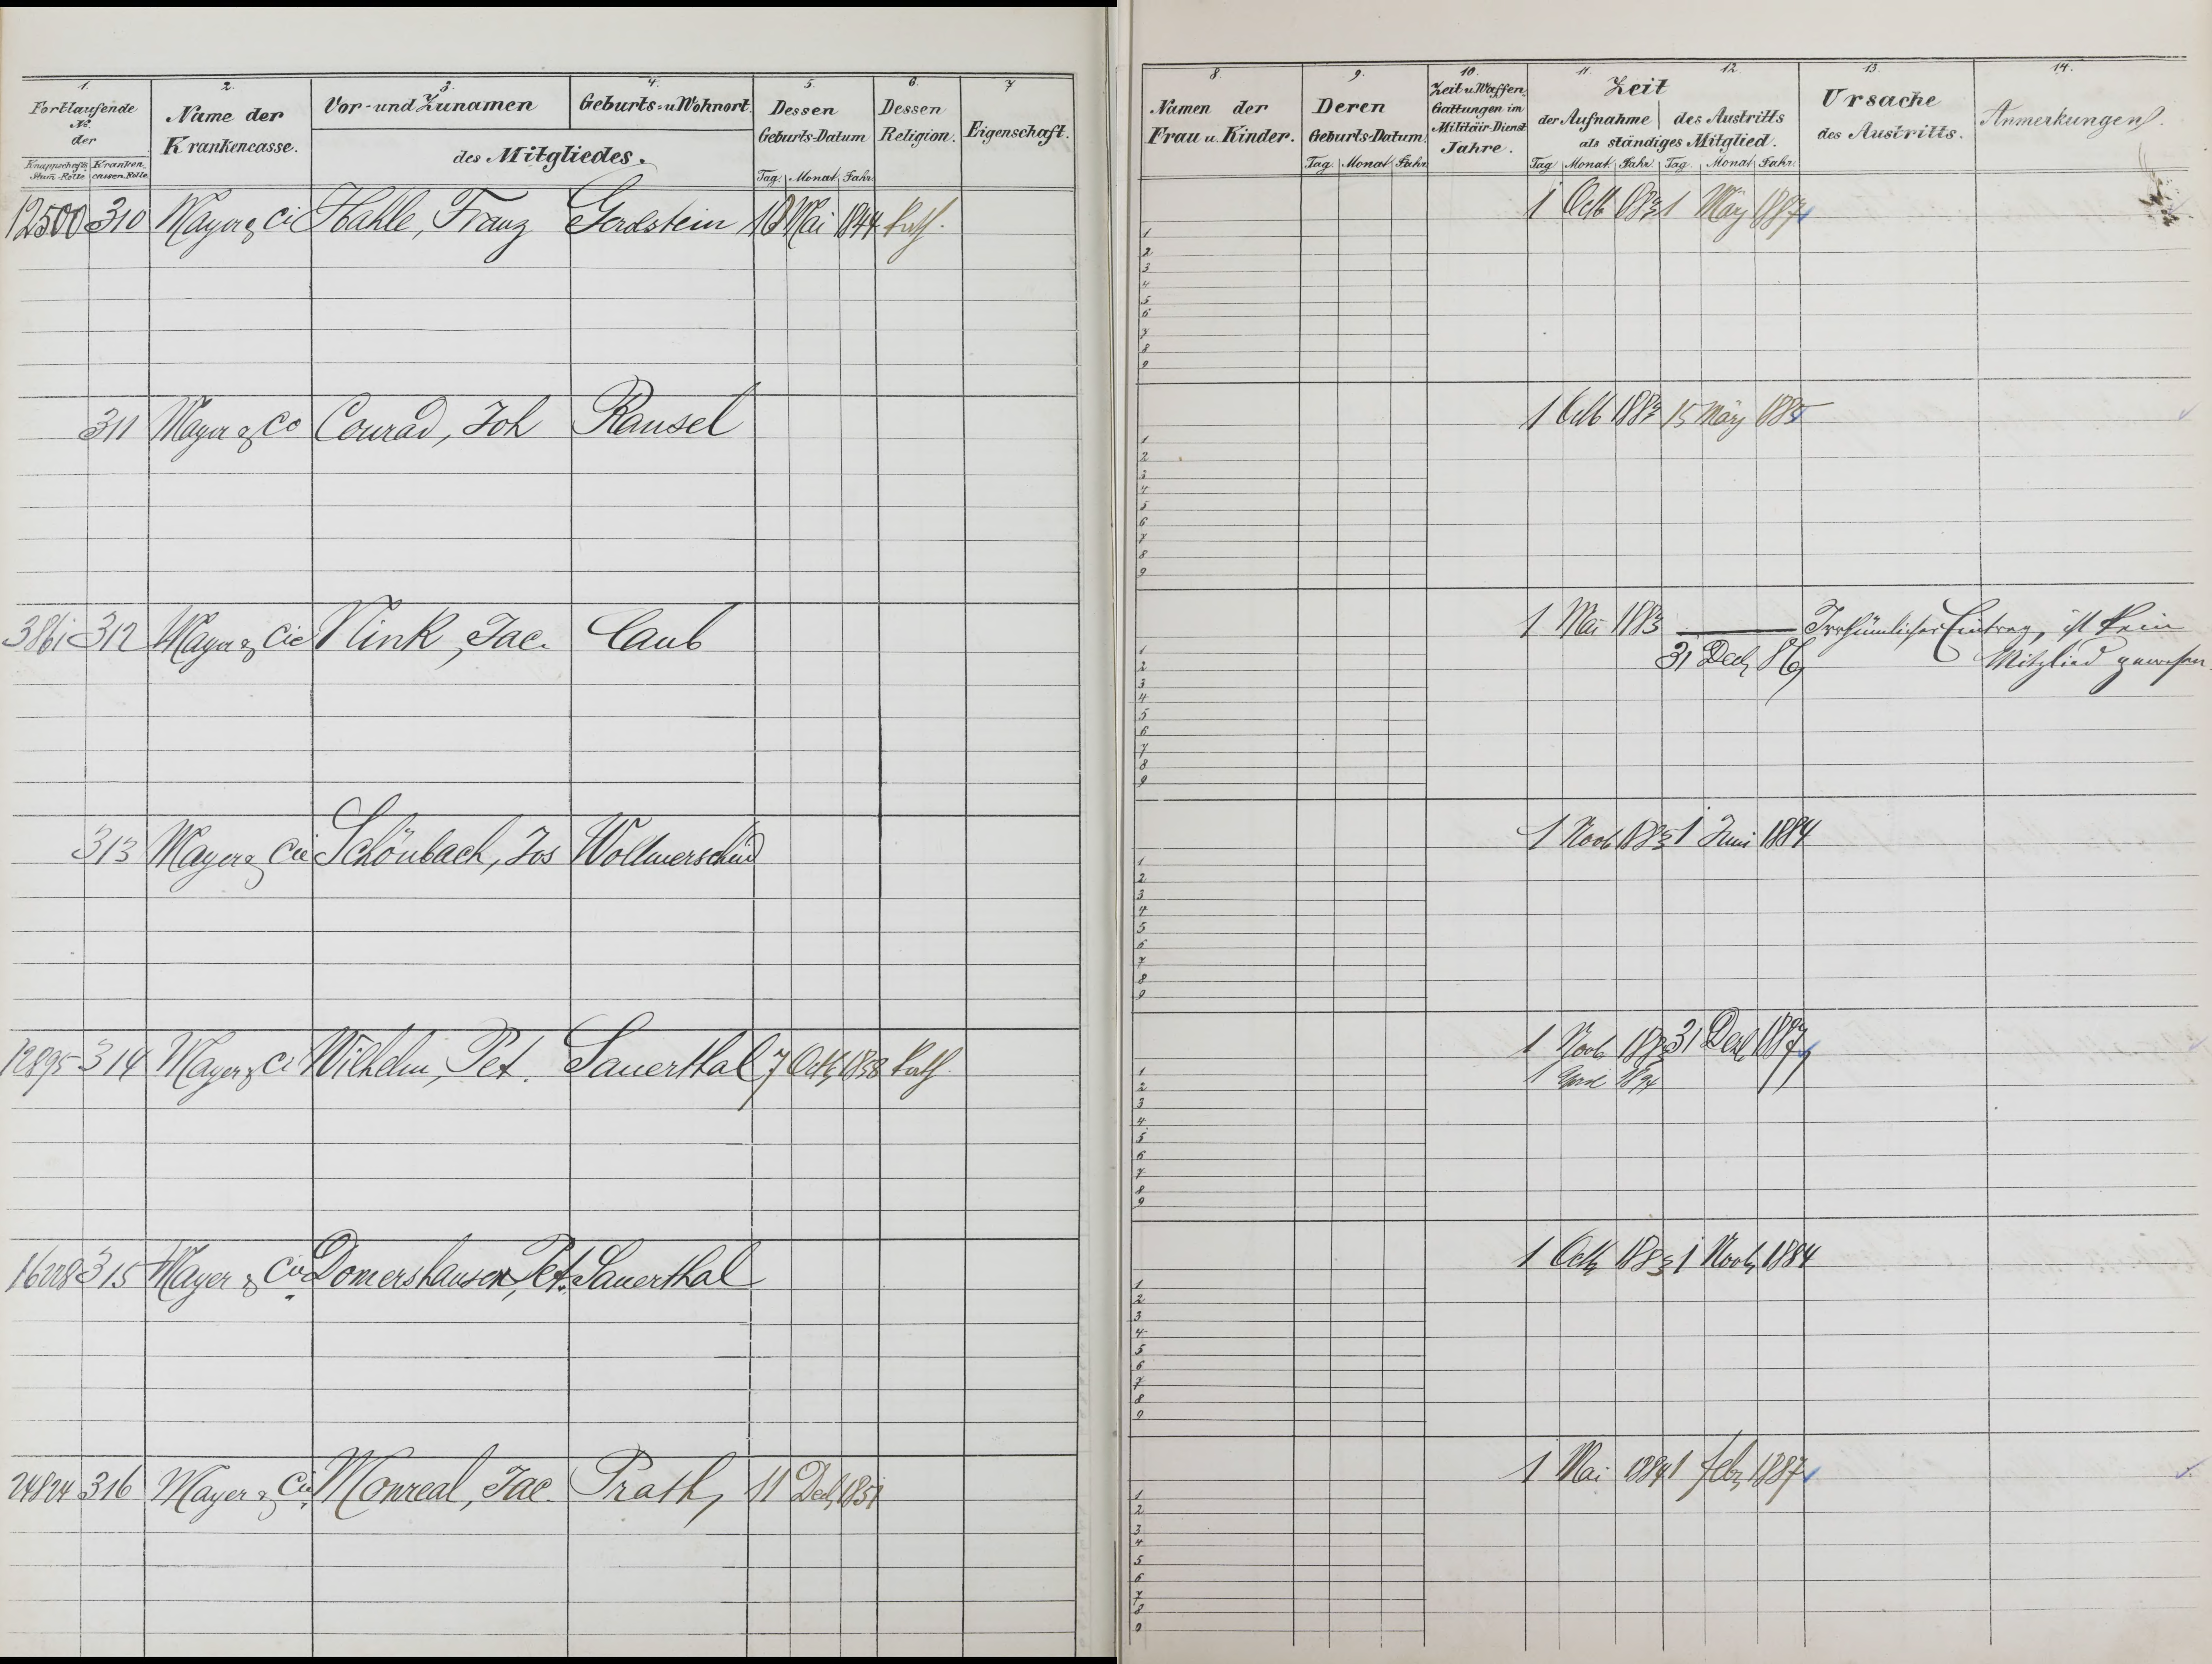 1. 2. 3. 4. 5. 6. 7
Fortlaufende No. der
Knappschafts Stam-Rolle Kranken cassen Rolle
Name der Krankencasse.
Vor- und Zunamen Geburts- u Wohnort.
des Mitgliedes.
Dessen Geburts-Datum
Tag. Monat. Jahr
Dessen Religion.
Eigenschaft.
8. 9. 10. 11. 12. 13. 14.
Namen der Frau u. Kinder.
Deren Geburts-Datum.
Tag. Monat Jahr
Zeit u Waffen Gattungen im Militair-Dienst Jahre.
Zeit
der Aufnahme des Austritts
als ständiges Mitglied.
Tag Monat Jahr Tag Monat. Jahr.
Ursache des Austritts.
Anmerkungen.
12500 310 Mayer & Ci Franz 18 Mai 1844 kath. 1 Octb 1883 1 März 1887
1
2
3
4
5
6
7
8
9
311 Mayer & Co Conrad, Joh Ransel 1 Octb 1883 15 März 1885
1
2
3
4
5
6
7
8
9
3861 312 Mayer & Cie Vlink, Jac. Caub 1 Mai 1883 Irrthümlicher Eintrag, ist kein
31 Dec 86 Mitglied gewesen.
1
2
3
4
5
6
7
8
9
313 Mayer & Cie Schönbach, Jos Wollmerschied 1 Novb 1883 1 Juni 1884
1
2
3
4
5
6
7
8
9
12895 314 Mayer & Ci Wilhelm, Pet. Sauerthal 7 Octb 1838 kath. 1 Novb 1883 31 Dez 1887
1 April 1894
1
2
3
4
5
6
7
8
9
315 Mayer & Cie Domershausen, Pet. Sauerthal 1 Octb 1883 1 Novb 1884
1
2
3
4
5
6
7
8
9
24824 316 Mayer & Cie Monreal, Jac. Prath, 11 Dec 1851 1 Mai 1884 1 Febr 1887
1
2
3
4
5
6
7
8
9